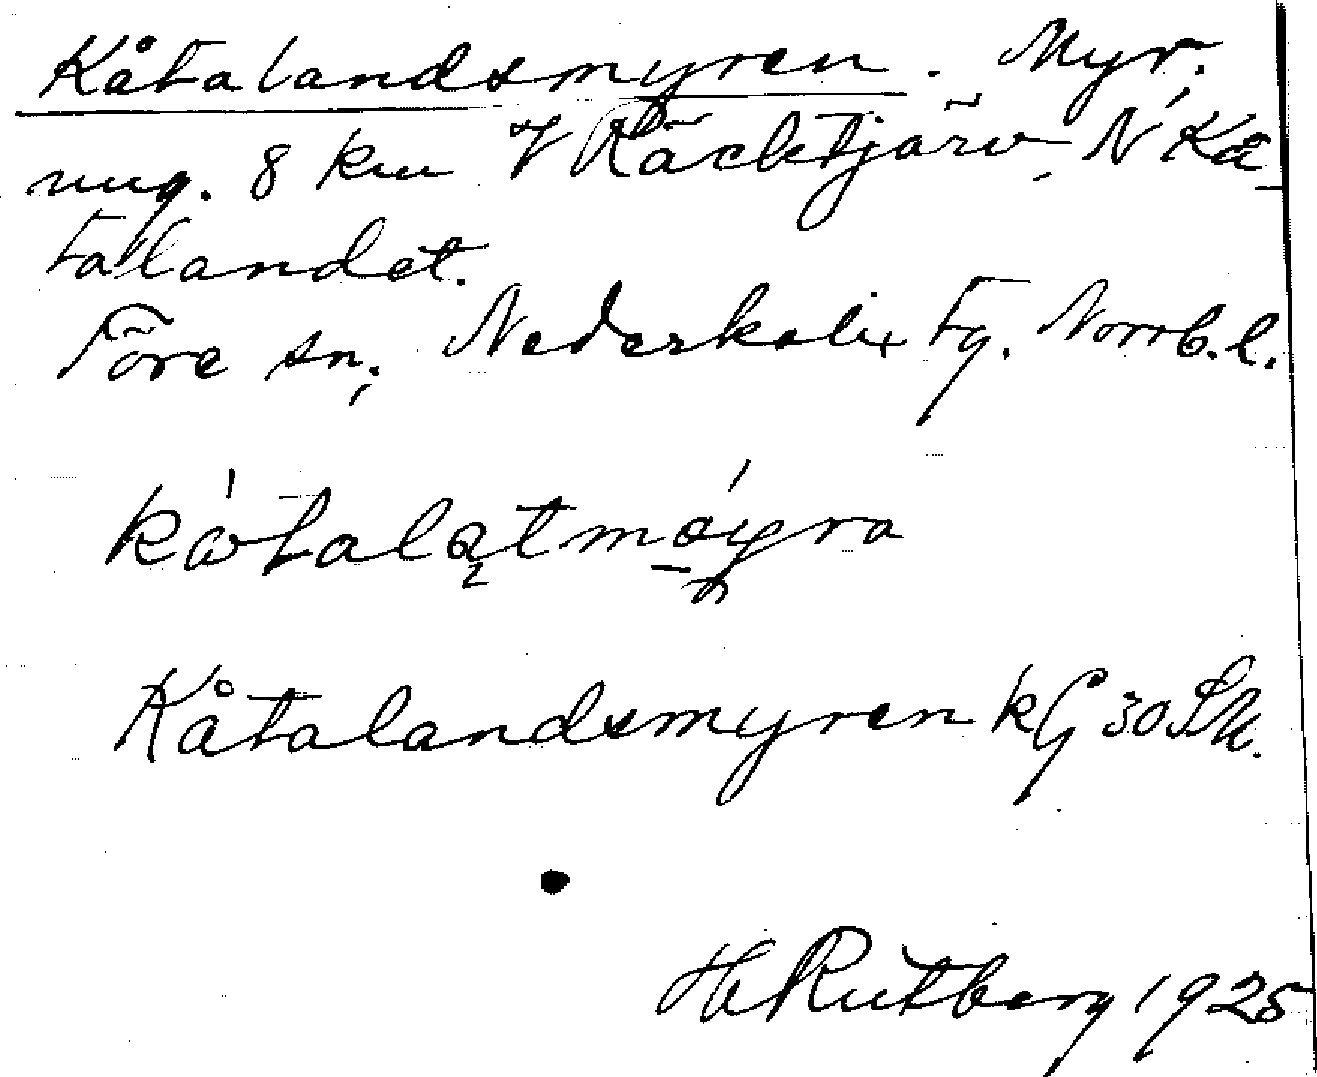 Kåtalandsmyren. Myr.
ung. 8 km V Räcktjärv, N Kå-
talandet.
Töre sn, Nederkalix tg. Norrb. l.
Kåtalandsmyren kG 30 SV.
H Rutberg 1925